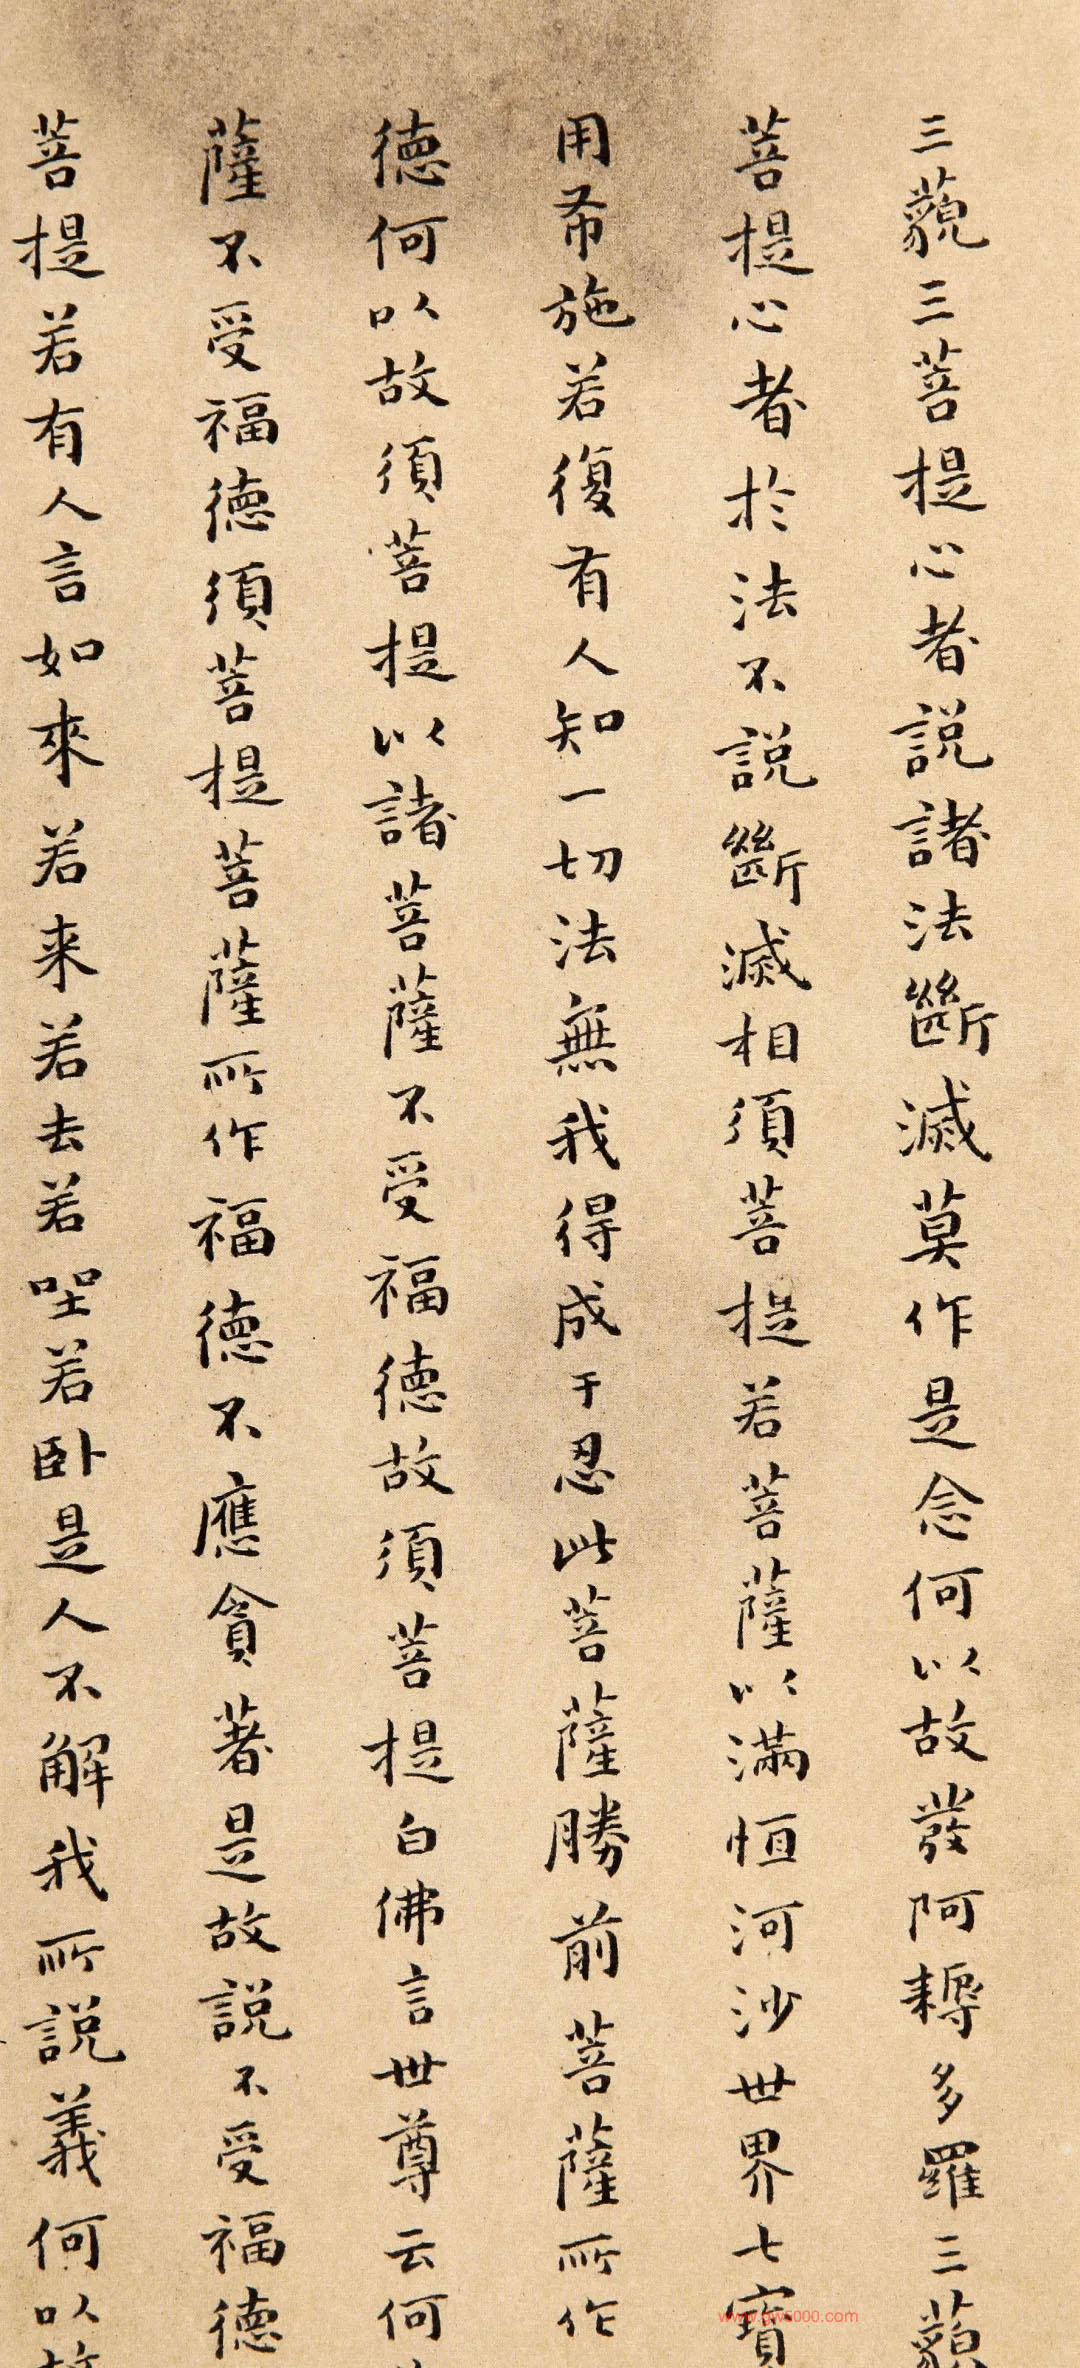 三藐三菩提心者說諸法斷滅莫作是念何以故發阿耨多羅三藐
菩提心者於法不說斷滅相須菩提若菩薩以滿恒河沙世界七寶
用布施若復有人知一切法無我得成于忍此菩薩勝前菩薩所作
德何以故須菩提以諸菩薩不受福德故須菩提白佛言世尊云何
薩不受福德須菩提菩薩所作福德不應貪著是故說不受福德
菩提若有人言如來若来若去若坐若臥是人不解我所說義何以故